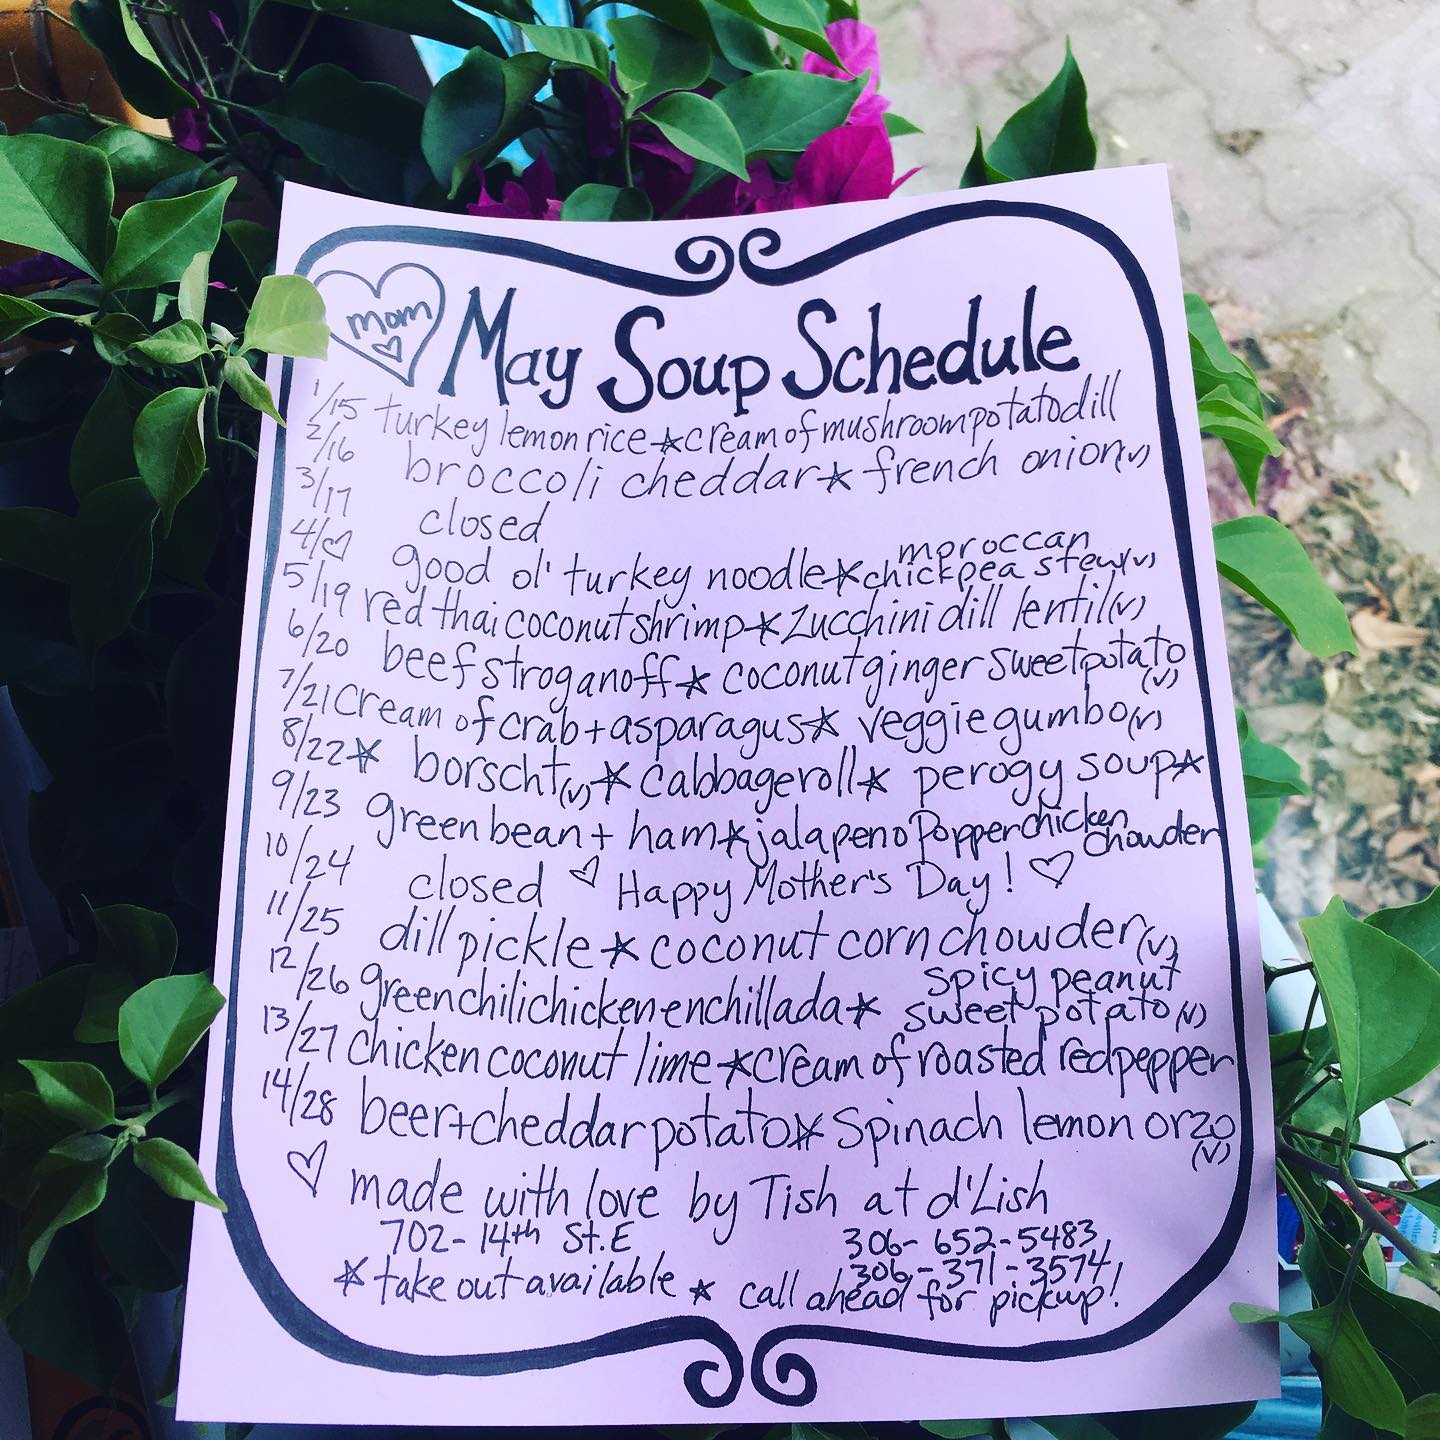 mom
May Soup Schedule
1/15 turkey lemon rice * cream of mushroom potato dill
2/16 broccoli cheddar * french onion (v)
3/17 closed
4/♡ good ol' turkey noodle * moroccan chickpea stew (v)
5/19 red thai coconut shrimp * zucchini dill lentil (v)
6/20 beef stroganoff * coconut ginger sweet potato (v)
7/21 cream of crab + asparagus * veggie gumbo (v)
8/22 * borscht (v) * cabbage roll * perogy soup *
9/23 green bean + ham * jalapeno popper chicken chowder
10/24 closed ♡ Happy Mother's Day! ♡
11/25 dill pickle * coconut corn chowder (v)
12/26 green chili chicken enchillada * spicy peanut sweet potato (v)
13/27 chicken coconut lime * cream of roasted red pepper
14/28 beer + cheddar potato * spinach lemon orzo (v)
♡ made with love by Tish at d'Lish
702-14th St. E 306-652-5483
306-371-3574
* take out available * call ahead for pickup!